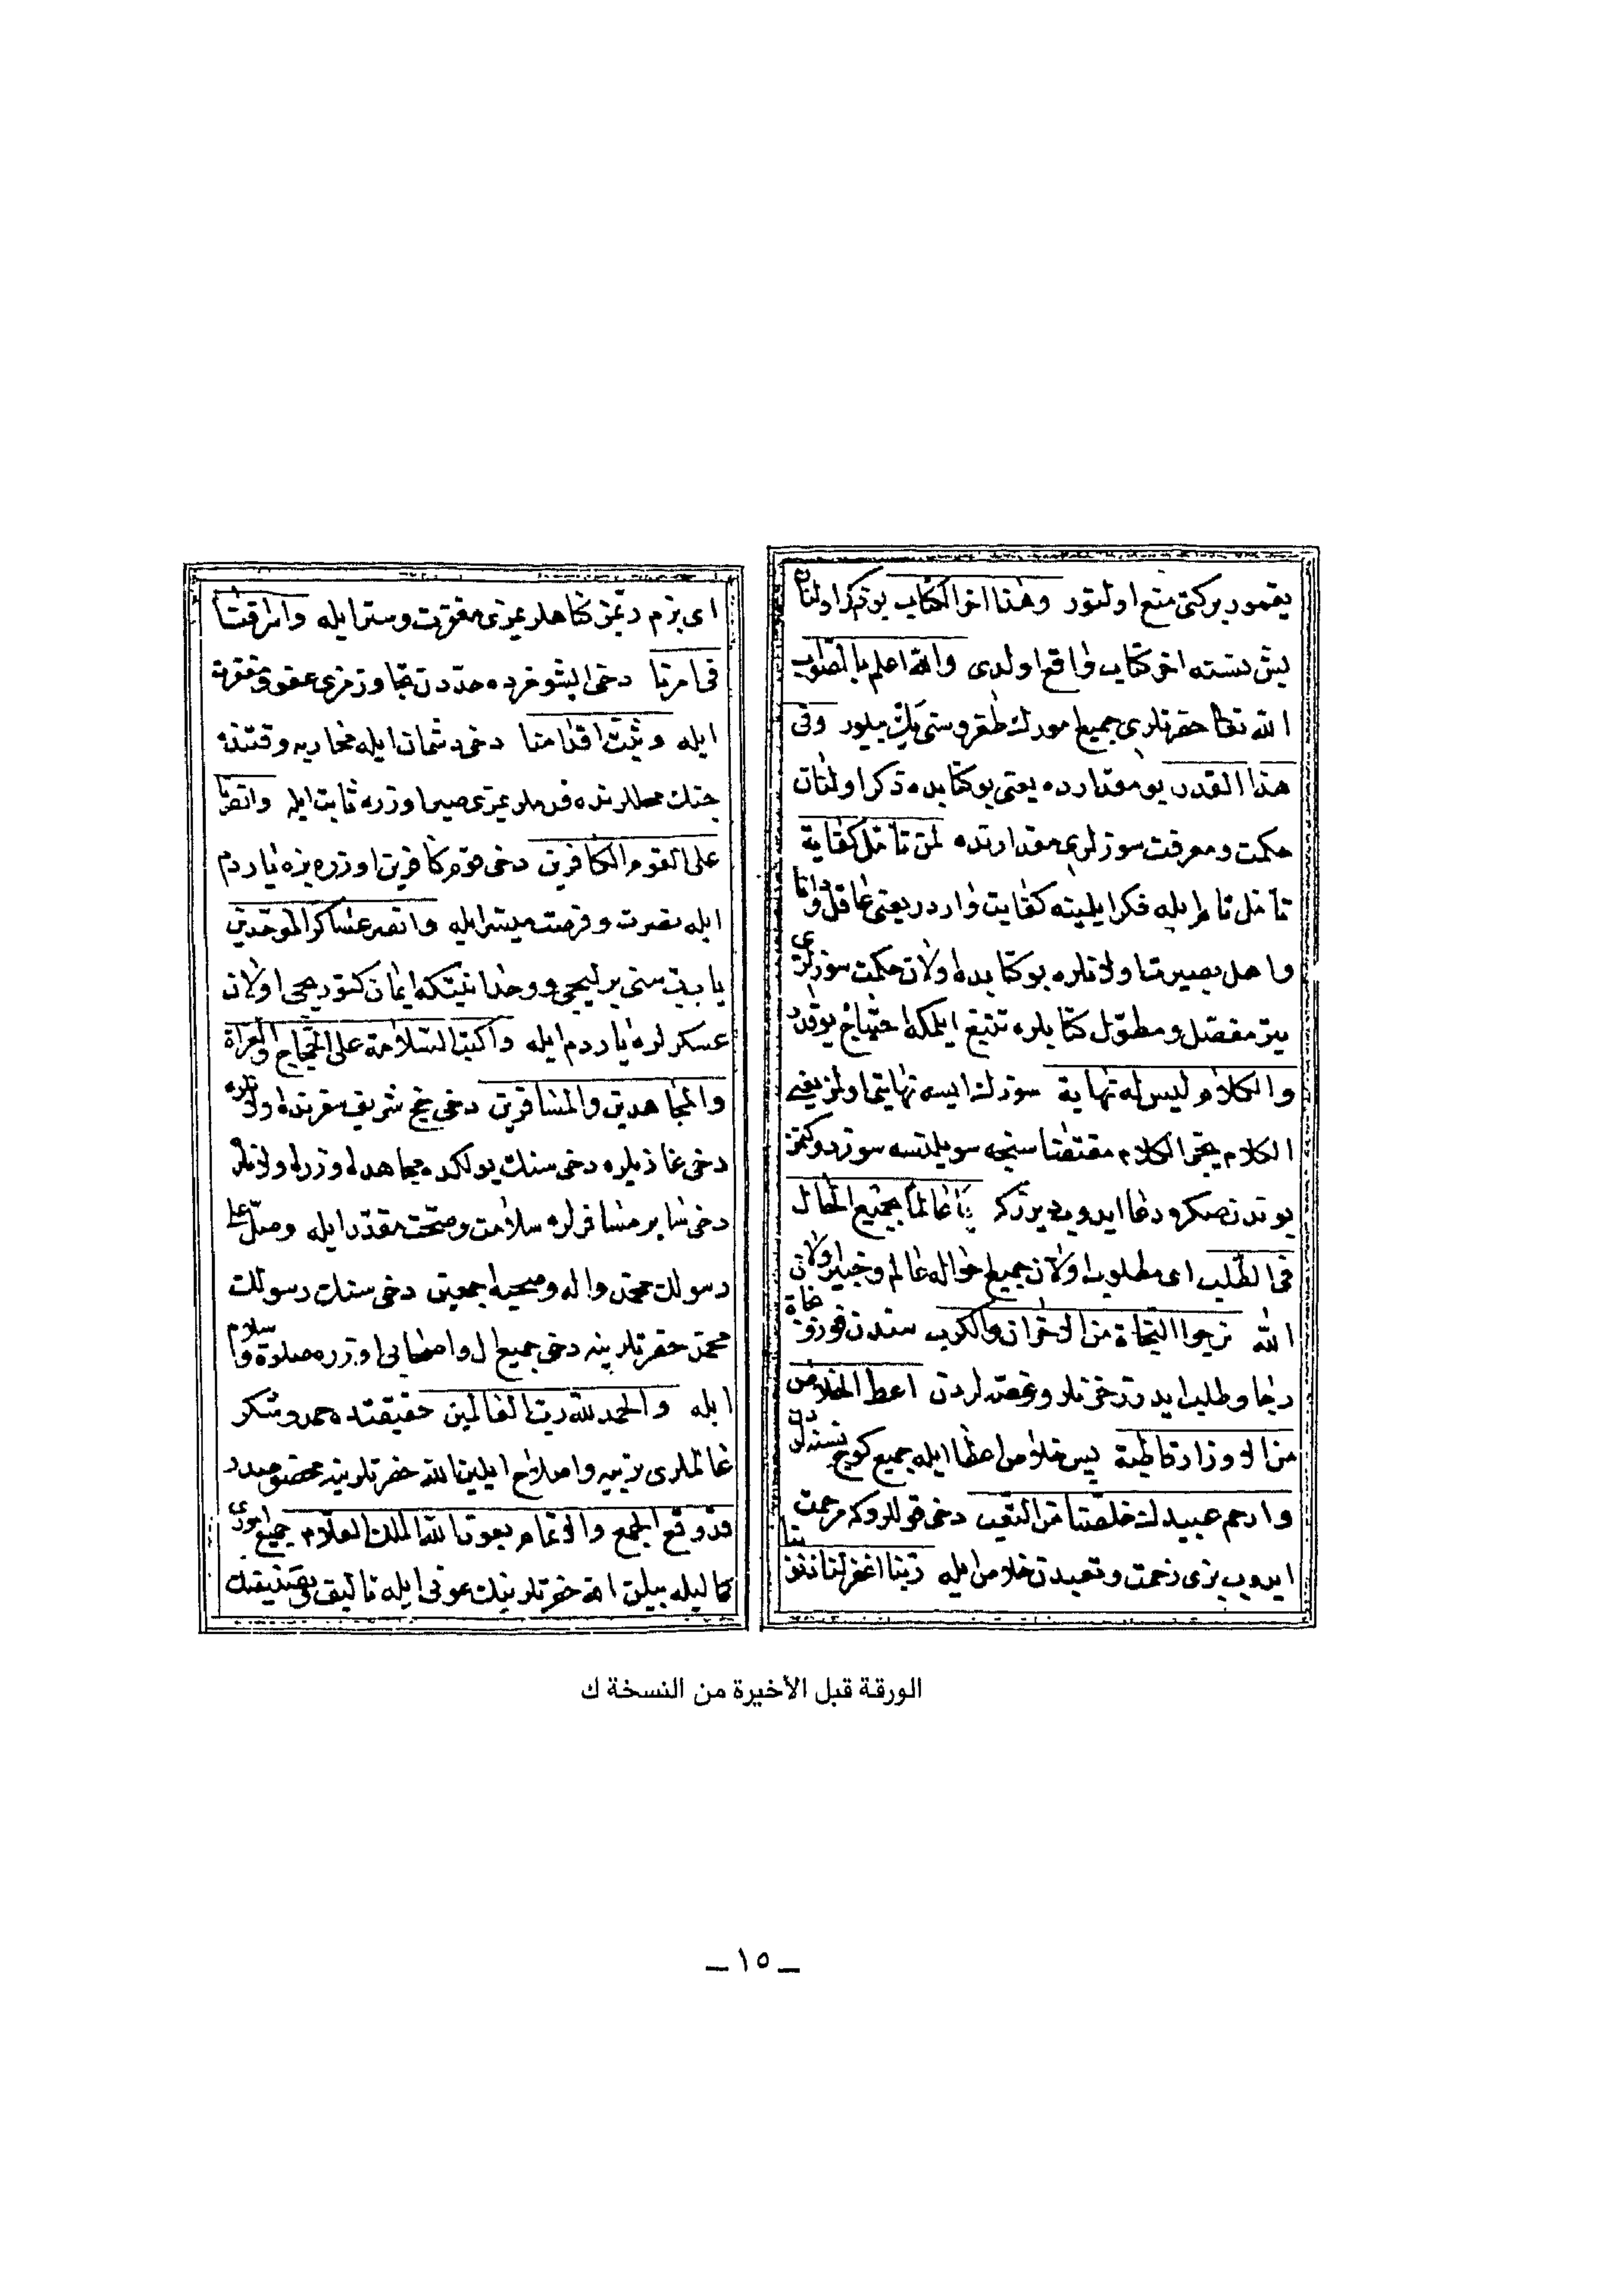 يغمور بركتى منع اولنور وهذا اخر الكتاب بو ذكر اولنان
بش نسنه اخر كتاب واقع اولدى والله اعلم بالصواب
الله تعا حضرتلرى جميع امورك طغروسنى يك بيلور وفى
هذا القدر بو مقدارده يعنى بو كتابده ذكر اولنان
حكمت ومعرفت سوزلرى مقدارنده لمن تأمل كفاية
تأمل تام ايله فكر ايلينه كفايت واردر يعنى عاقل ودانا
واهل بصيرت اولانلره بو كتابده اولان حكمت سوزلرى
يتر مفصل ومطول كتابلره تتبع ايلمكه احتياج يوقدر
والكلام ليس له نهاية سوزك ايسه نهايتى اولمز يعنى
الكلام يجر الكلام مقتضاسنجه سويلنسه سوز دوكنمز
بوندن صكره دعا ايدوب ديرزكه يا عالما بجميع الحال
فى الطلب اى مطلوب اولان جميع احواله عالم وخبير اولان
الله نرجوا النجاة من الاحزان والكرب سندن قورتو نجاة
رجا وطلب ايدرز حزنلر وغصه لردن اعط الخلاص
من الاوزار قاطبة پس خلاص اعطا ايله جميع كوچ نسنه لردن
وارحم عبيدك خلصنا من التعب دخى قوللروكه مرحمت
ايدوب بزى زحمت وتعبدن خلاص ايله ربنا اغفر لنا ذنوبنا
اى بزم ربمز كناهلريمزى مغفرت وستر ايله واسرافنا
فى امرنا دخى ايشومزده حددن تجاوزمزى عفو ومغفرت
ايله وثبت اقدامنا دخى دشمان ايله محاربه وقتنده
جنك محللرنده قدملريمزى صبر اوزره ثابت ايله وانصرنا
على القوم الكافرين دخى قوم كافرين اوزره بزه ياردم
ايله نصرت وفرصت ميسر ايله وانصر عساكر الموحدين
يا رب سنى برليجى ووحدانيتكه ايمان كتوريجى اولان
عسكرلره ياردم ايله واكتب السلامة على الحجاج والغزاة
والمجاهدين والمسافرين دخى حج شريف سفرنده اولانلره
دخى غازيلره دخى سنك يولكده مجاهده اوزره اولانلره
دخى ساير مسافرلره سلامت وصحت مقدر ايله وصل على
رسولك محمد واله وصحبه اجمعين دخى سنك رسولك
محمد حضرتلرينه دخى جميع ال واصحابى اوزره صلاة وسلام
ايله والحمد لله رب العالمين حقيقتده حمد وشكر
عالملرى تربيه واصلاح ايلين الله حضرتلرينه مخصوصدر
قد وقع الجمع والاتمام بعون الله الملك العلام جميع امورى
كماليله بيلن الله حضرتلرينك عونى ايله تأليف وتصنيفك
الورقة قبل الأخيرة من النسخة ك
ـ ١٥ ـ